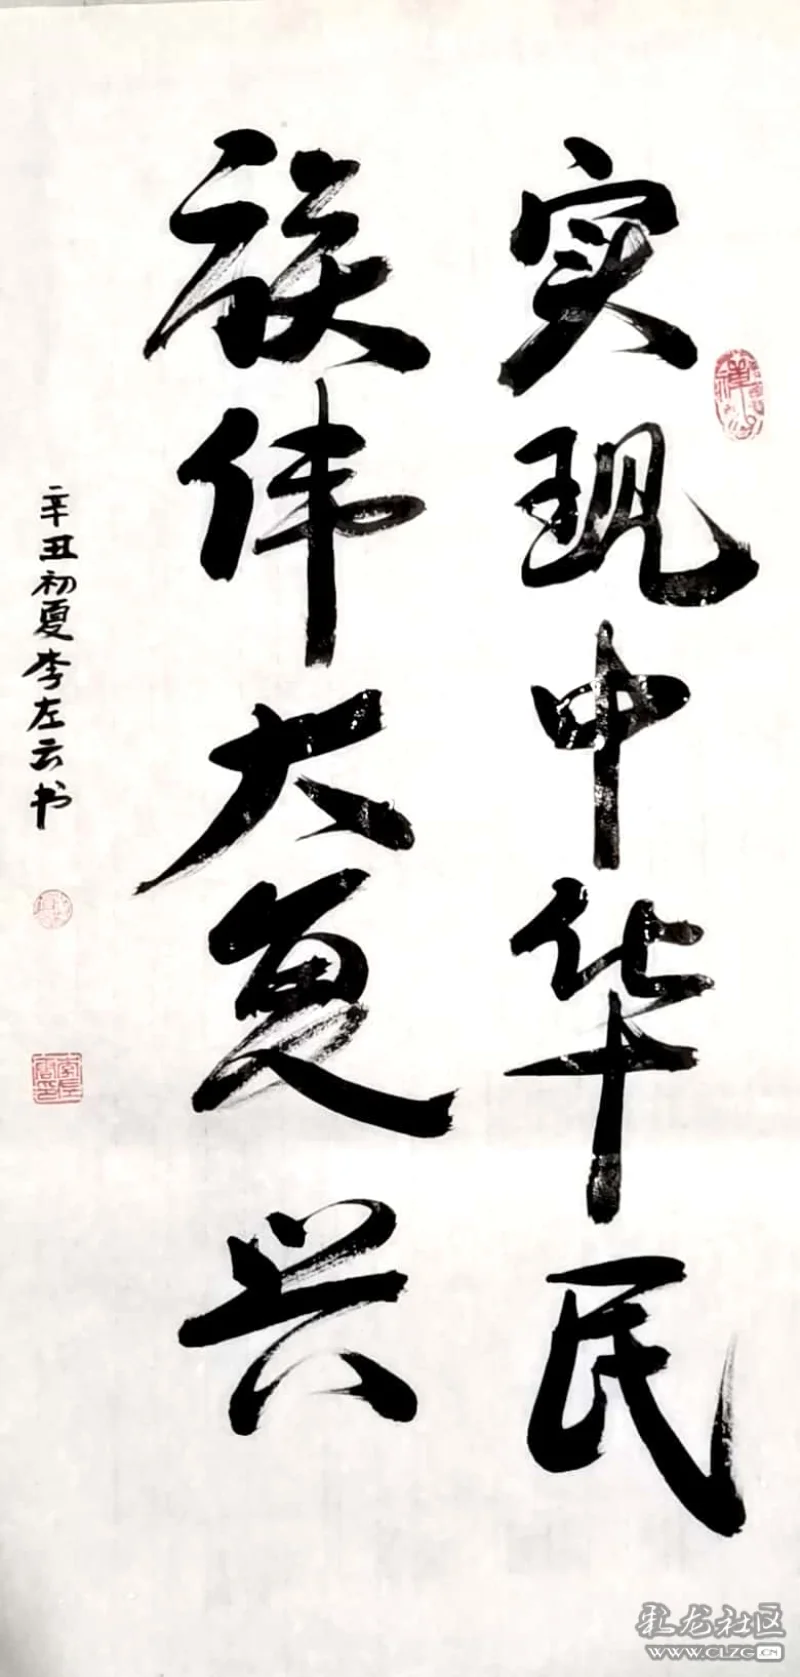 实现中华民
族伟大复兴
辛丑初夏李左云书
彩龙社区
WWW.CLZG.CN